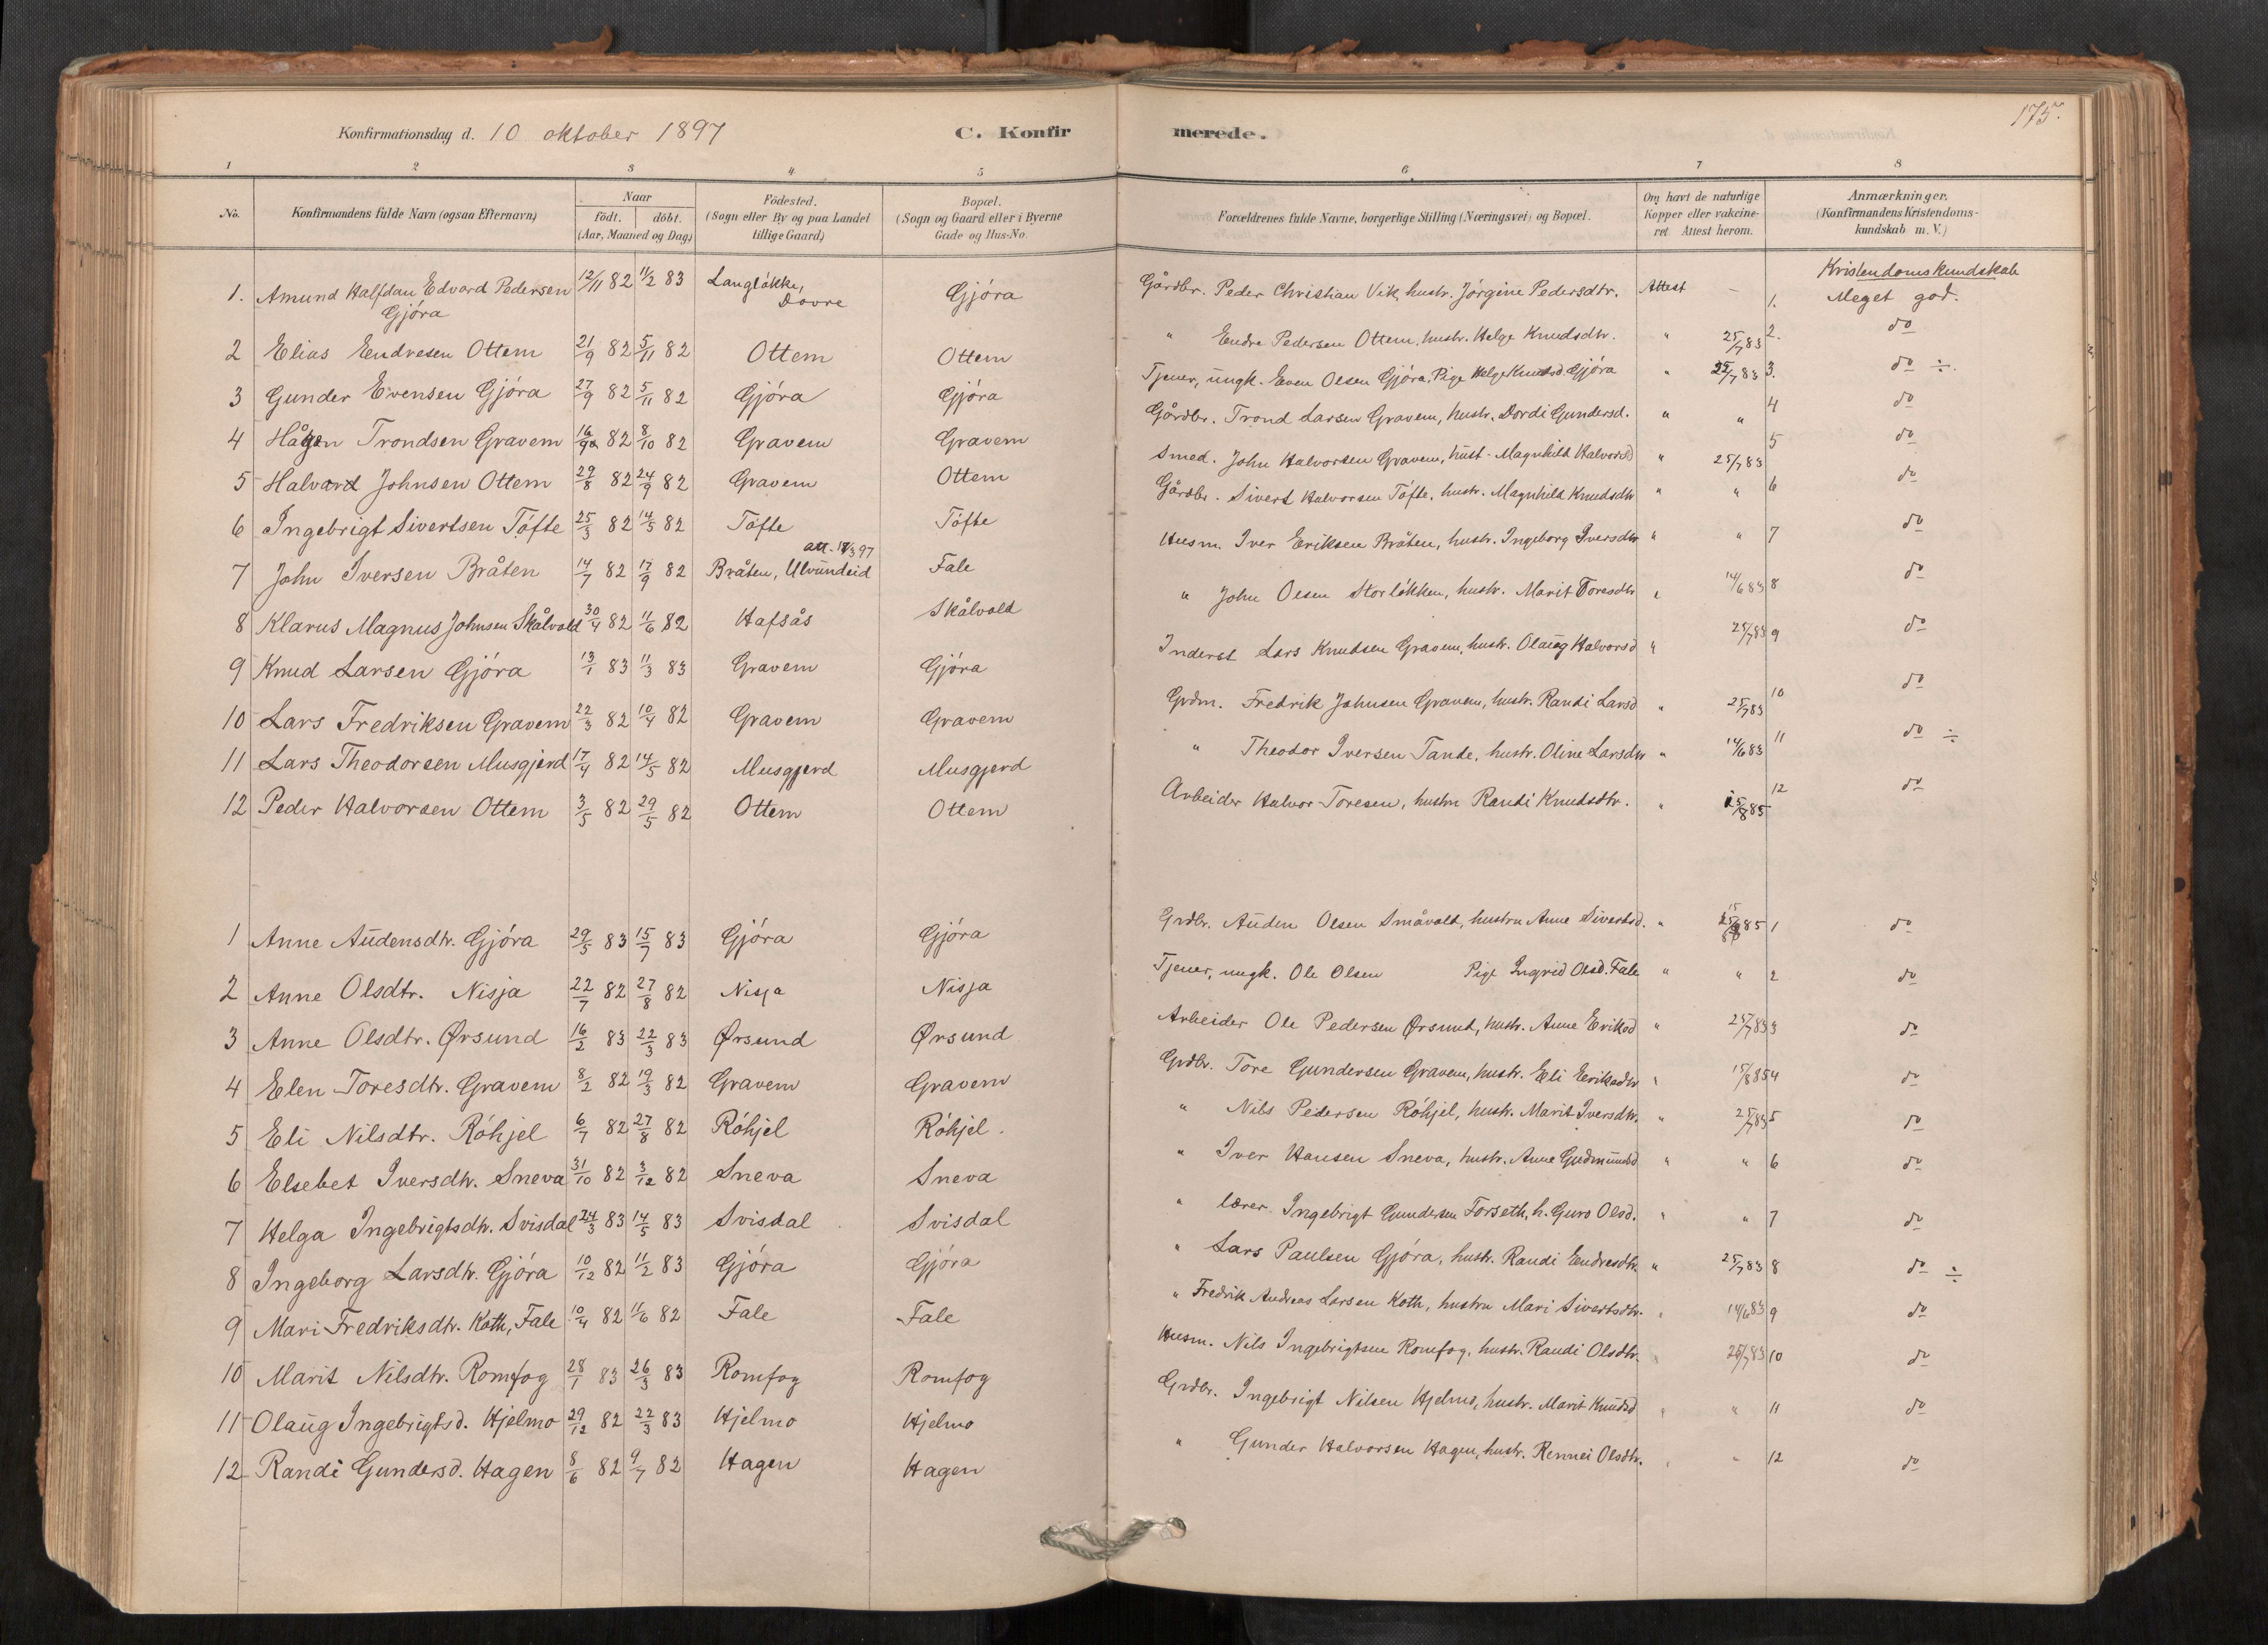 Konfirmationsdag d. 10 oktober 1897 C. Konfirmerede. 175.
1 2 3 4 5 6 7 8
No. Konfirmandens fulde Navn (ogsaa Efternavn) Naar født. døbt. (Aar, Maaned og Dag) Fødested. (Sogn eller By og paa Landet tillige Gaard) Bopæl. (Sogn og Gaard eller i Byerne Gade og Hus-No. Forældrenes fulde Navne, borgerlige Stilling (Næringsvei) og Bopæl. Om havt de naturlige Kopper eller vakcineret Attest herom. Anmærkninger. (Konfirmandens Kristendomskundskab m. V.)
Kristendomskundskab
1. Amund Halfdan Edvard Pedersen Gjóra 12/11 82 11/2 83 Langløkke, Dovre Gjóra Gårdbr. Peder Christian Vik, hustr. Jórgine Pedersdtr. Attest – 1. Meget god.
2 Elias Endresen Ottem 21/9 82 5/11 82 Ottem Ottem " Endre Pedersen Ottem, hustr. Helge Knudsdtr. " 25/7 83 2. do
3 Gunder Evensen Gjóra 27/9 82 5/11 82 Gjóra Gjóra Tjener, ungk. Even Olsen Gjóra, Pige Helge Knudsd. Gjóra " 25/7 83 3. do ÷.
4 Hågen Trondsen Gravem 16/9 82 8/10 82 Gravem Gravem Gårdbr. Trond Larsen Gravem, hustr. Dordi Gundersd. " " 4 do
5 Halvard Johnsen Ottem 29/8 82 24/9 82 Gravem Ottem Smed. John Halvorsen Gravem, hust. Magnhild Halvorsd " 25/7 83 5 do
6 Ingebrigt Sivertsen Tófte 25/3 82 14/5 82 Tófte Tófte Gårdbr. Sivert Halvorsen Tófte, hustr. Magnhild Knudsdtr " " 6 do
7 John Iversen Bråten 14/7 82 17/9 82 att. 97 Bråten, Ulvundeid Fale Husm. Iver Eriksen Bråten, hustr. Ingeborg Iversdtr " " 7 do
8 Klarus Magnus Johnsen Skålvold 30/4 82 11/6 82 Hafsås Skålvold " John Olsen Storlókken, hustr. Marit Toresdtr " 14/6 83 8 do
9 Knud Larsen Gjóra 13/1 83 11/3 83 Gravem Gjóra Inderst Lars Knudsen Gravem, hustr. Olaug Halvorsd " 25/7 83 9 do
10 Lars Fredriksen Gravem 22/3 82 10/4 82 Gravem Gravem Grdm. Fredrik Johnsen Gravem, hustr. Randi Larsd " 25/7 83 10 do
11 Lars Theodorsen Musgjerd 17/4 82 14/5 82 Musgjerd Musgjerd " Theodor Iversen Tande, hustr. Oline Larsdtr " 14/6 83 11 do ÷
12 Peder Halvorsen Ottem 3/5 82 29/5 82 Ottem Ottem Arbeider Halvor Toresen, hustru Randi Knudsdtr. " 15/8 85 12 do
1 Anne Audensdtr. Gjóra 29/5 83 15/7 83 Gjóra Gjóra Grdbr. Auden Olsen Småvold, hustru Anne Sivertsd. " 15/8 85 1 do
2 Anne Olsdtr. Nisja 22/7 82 27/8 82 Nisja Nisja Tjener, ungk. Ole Olsen Pige Ingrid Olsd. Fale " " 2 do
3 Anne Olsdtr. Ørsund 16/2 83 22/3 83 Ørsund Ørsund Arbeider Ole Pedersen Ørsund, hustr. Anne Eriksd " 25/7 83 3 do
4 Elen Toresdtr. Gravem 8/2 82 19/3 82 Gravem Gravem Grdbr. Tore Gundersen Gravem, hustr. Eli Eriksdtr " 15/8 85 4 do
5 Eli Nilsdtr. Róhjel 6/7 82 27/8 82 Róhjel Róhjel. " Nils Pedersen Róhjel, hustr. Marit Iversdtr. " 25/7 83 5 do
6 Elsebet Iversdtr. Sneva 31/10 82 3/12 82 Sneva Sneva " Iver Hansen Sneva, hustr. Anne Gudmundsd " " 6 do
7 Helga Ingebrigtsdtr. Svisdal 24/3 83 14/5 83 Svisdal Svisdal " lærer. Ingebrigt Gundersen Forseth, h. Guro Olsd. " " 7 do
8 Ingeborg Larsdtr. Gjóra 10/12 82 11/2 83 Gjóra Gjóra " Lars Paulsen Gjóra, hustr. Randi Endresdtr. " 25/7 83 8 do ÷
9 Mari Fredriksdtr. Koth, Fale 10/4 82 11/6 82 Fale Fale " Fredrik Andreas Larsen Koth, hustru Mari Sivertsdtr. " 14/6 83 9 do
10 Marit Nilsdtr. Romfog 28/1 83 26/3 83 Romfog Romfog Husm. Nils Ingebrigtsen Romfog, hustr. Randi Olsdtr. " 25/7 83 10 do
11 Olaug Ingebrigtsd. Hjelmo 29/12 82 22/3 83 Hjelmo Hjelmo Grdbr. Ingebrigt Nilsen Hjelmo, hustr. Marit Knudsd " " 11 do
12 Randi Gundersd. Hagen 8/6 82 9/7 82 Hagen Hagen " Gunder Halvorsen Hagen, hustr. Rennei Olsdtr. " " 12 do